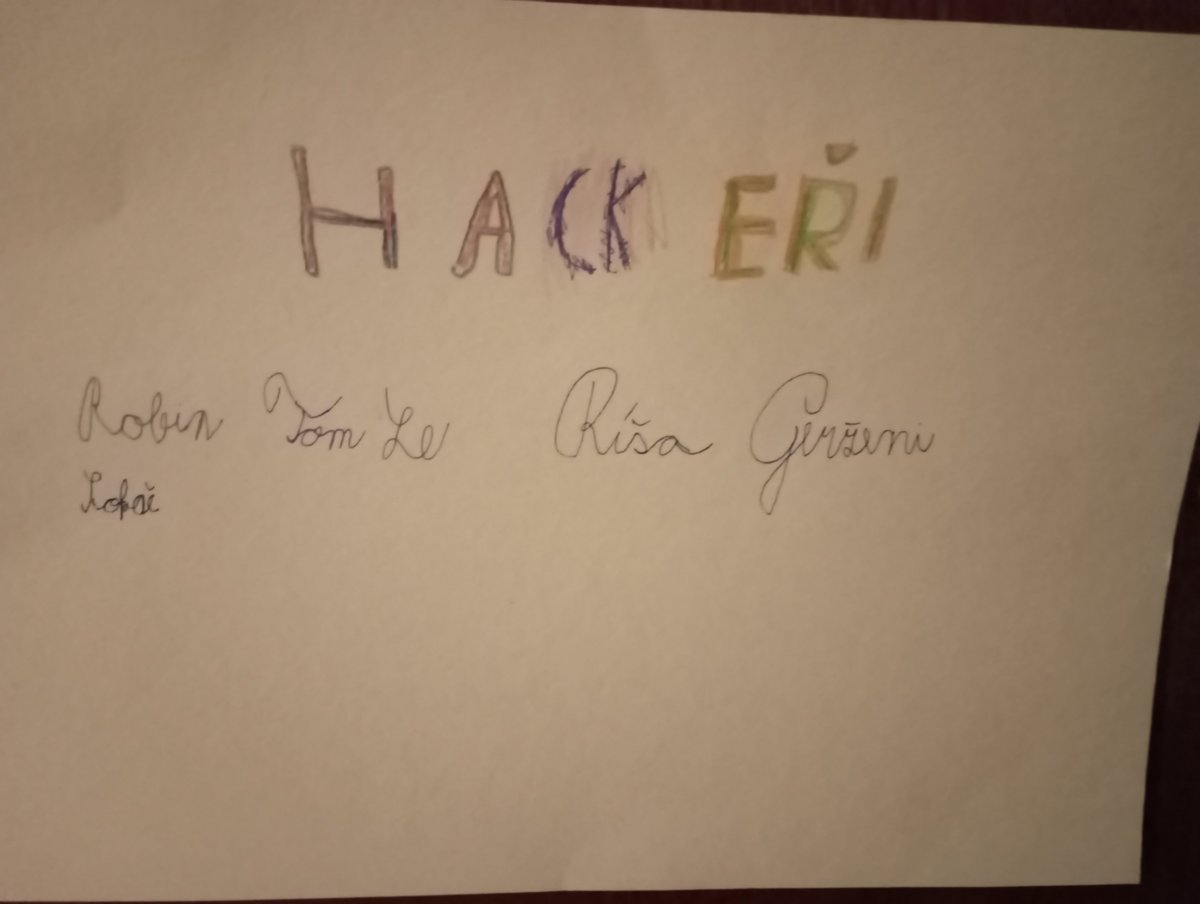 HACKEŘI
Robin Tom Le Ríša Gerženi